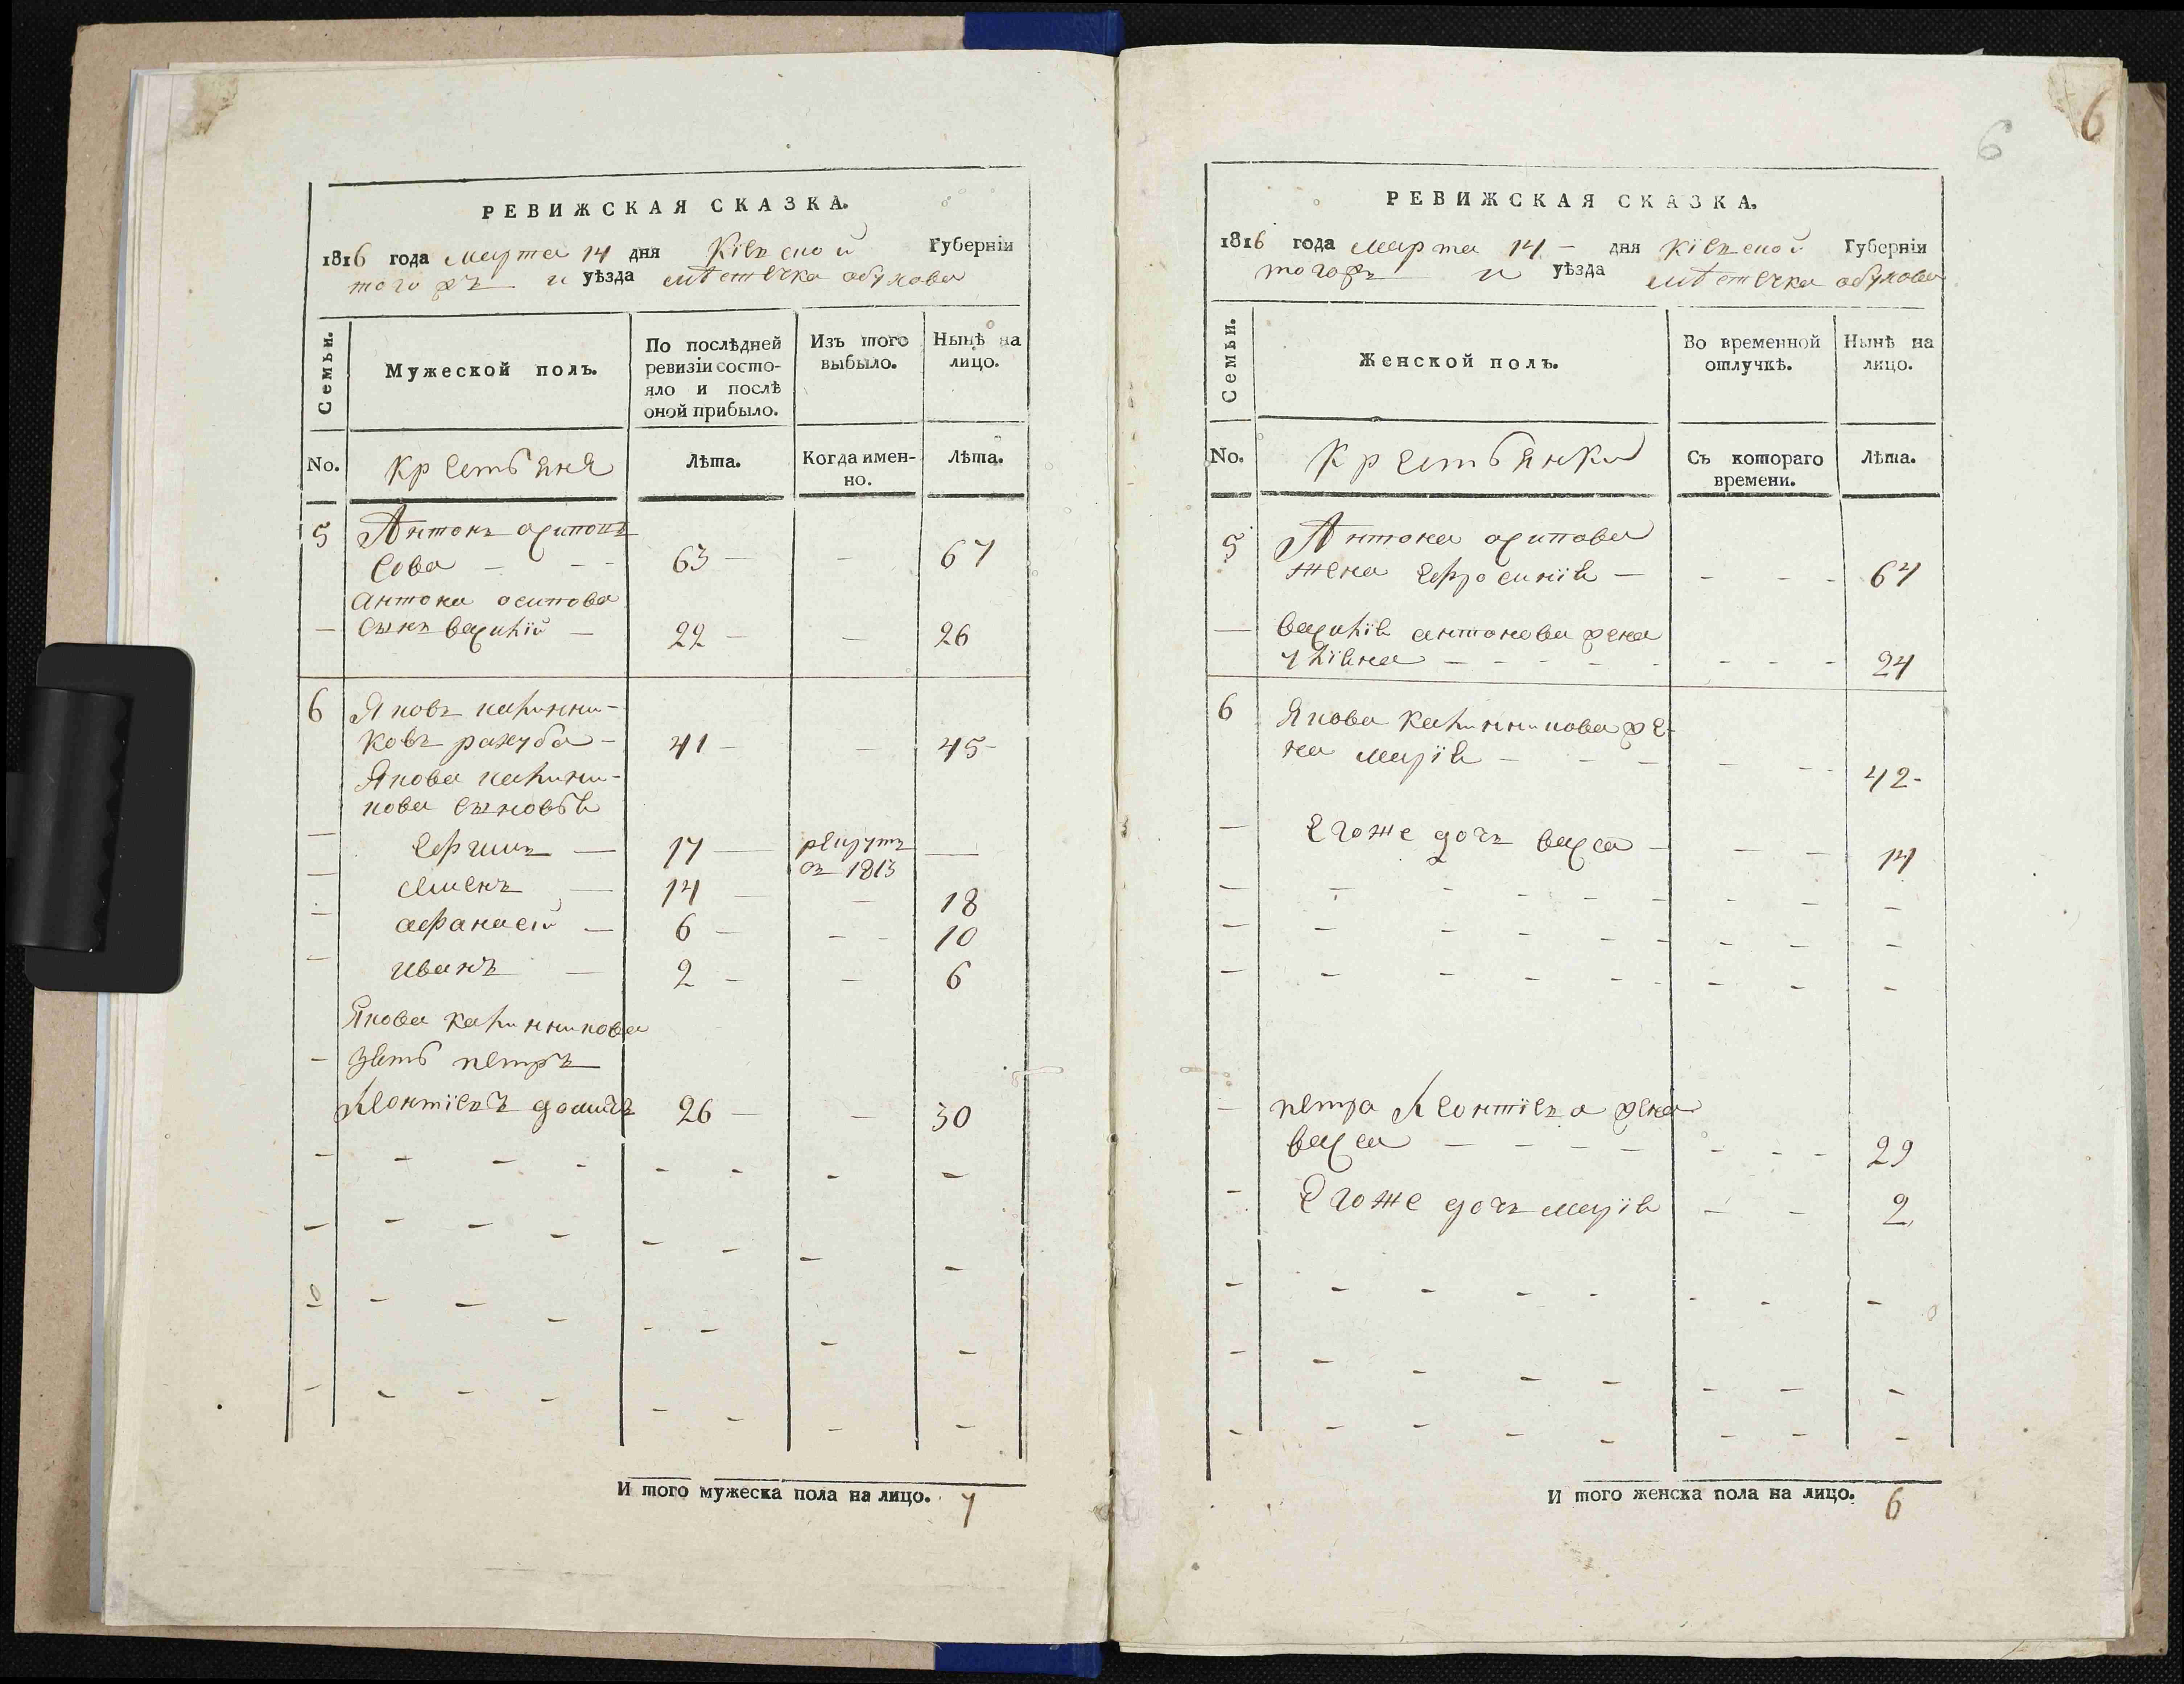 РЕВИЖСКАЯ СКАЗКА.
1816 года марта 14 дня Кіевской Губерніи
того жъ и уѣзда мѣстечка обухова
Семьи.
Мужеской полъ.
По послѣдней
ревизіи состо-
яло и послѣ
оной прибыло.
Изъ того
выбыло.
Нынѣ на
лицо.
No.
Крестьяня
Лѣта.
Когда имен-
но.
Лѣта.
5 Антонъ осиповъ
Сова - - - 63 - - 67
антона осипова
- сынъ василій - 22 - - 26
6 Яковъ калинни-
ковъ рахуба - 41 - - 45 -
Якова калинни-
кова сыновья
- Ефимъ - 17 - рекрутъ
въ 1813 -
- семенъ - 14 - - 18
- афанасій - 6 - - - 10
- иванъ - 2 - - 6
Якова калинникова
- зять петръ
Леонтіевъ 26 - - 30
И того мужеска пола на лицо. 7
6
6
РЕВИЖСКАЯ СКАЗКА.
1816 года марта 14 - дня Кіевской Губерніи
того жъ и уѣзда мѣстечка обухова
Семьи.
Женской полъ.
Во временной
отлучкѣ.
Нынѣ на
лицо.
No.
Крестьянки
Съ котораго
времени.
Лѣта.
5 Антона осипова
жена Ефросинія - - - - 64
- василія антонова жена
уліяна - - - - - - - - 24
6 Якова калинникова же-
на марія - - - - - - 42 -
- Егоже дочь васса - - - 14
- петра Леонтіева жена
васса - - - - - - - 29
- Егоже дочь марія - - 2
И того женска пола на лицо. 6